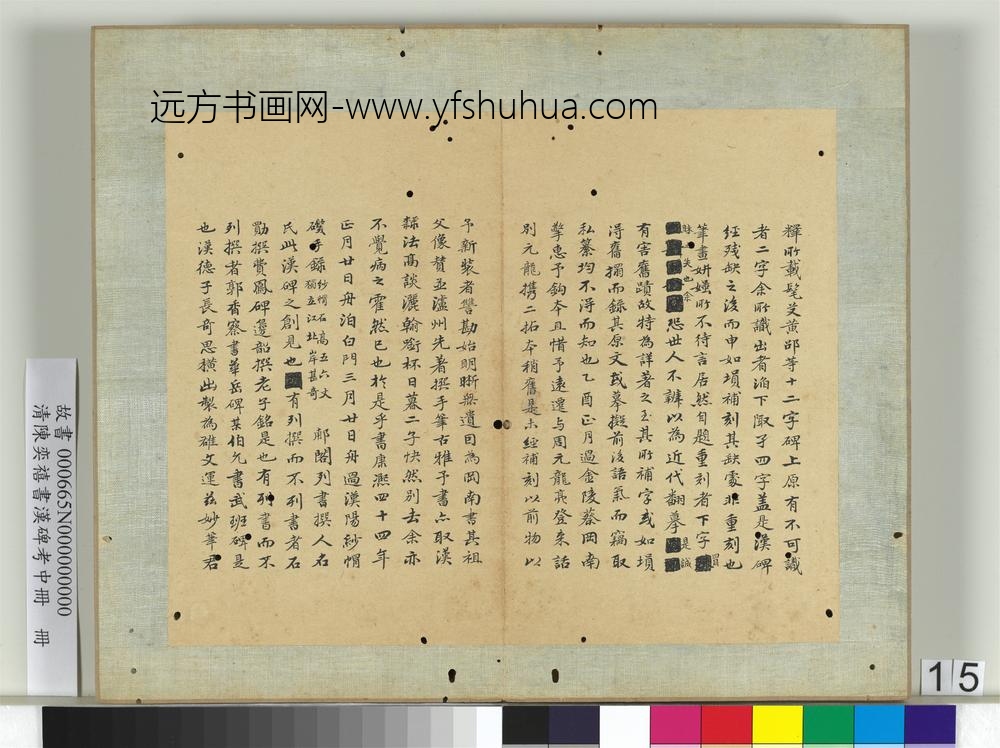 远方书画网-www.yfshuhua.com
釋所載髦芟黄邵等十二字碑上原有不可識
者二字余所識出者滔下陬子四字盖是漢碑
經残缺之後而申如塤補刻其缺處非重刻也
筆畫妍媸所不待言居然自題重刻者下字
恐世人不辨以為近代翻摹
是誠
有害舊蹟故特為詳著之玉其所補字或如塤
得舊搨而録其原文或摹擬前後語氣而竊取
私纂均不得而知也乙酉正月過金陵蔡岡南
擎惠予鈎本且惜予遠還与周元龍亮登來話
别元龍携二拓本稍舊是未經補刻以前物以
予新裝者讐勘始明晰無遺因為岡南書其祖
父像賛並瀘州先著撰手筆古雅予書亦取漢
隸法高談灑翰銜杯日暮二子怏然别去余亦
不覺病之霍然已也於是乎書康熙四十四年
正月廿日舟泊白門三月廿日舟過漢陽紗帽
礮手録
紗帽石高五六丈
獨立江北岸甚奇
郙閣列書撰人名
氏此漢碑之創見也
有列撰而不列書者石
勛撰費鳳碑邊韶撰老子銘是也有列書而不
列撰者郭香察書華岳碑某伯允書武班碑是
也漢德子長奇思横出製為碓文運茲妙筆君
故書 000665N000000000
清陳奕禧書漢碑考中冊 冊
15